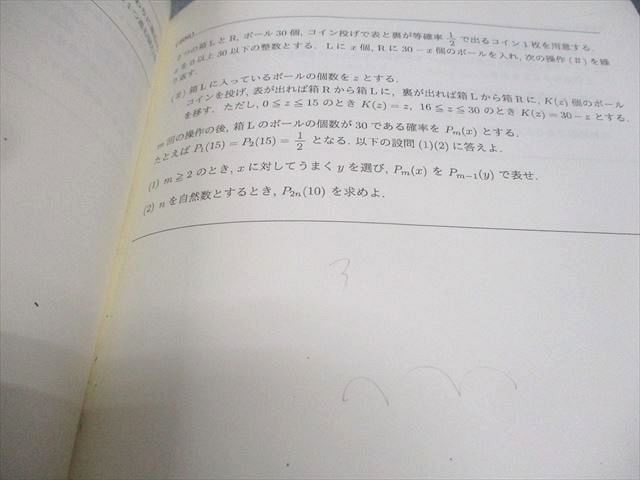 2つの箱LとR, ボール30個, コイン投げで表と裏が等確率 1/2 で出るコイン1枚を用意する.
xを0以上30以下の整数とする. Lにx個, Rに30−x個のボールを入れ, 次の操作(♯)を繰
り返す.
(♯) 箱Lに入っているボールの個数をzとする.
コインを投げ, 表が出れば箱Rから箱Lに, 裏が出れば箱Lから箱Rに, K(z)個のボール
を移す. ただし, 0≦z≦15のときK(z)=z, 16≦z≦30のときK(z)=30−zとする.
m回の操作の後, 箱Lのボールの個数が30である確率をPm(x)とする.
たとえばP1(15)=P2(15)=1/2 となる. 以下の設問(1)(2)に答えよ.
(1) m≧2のとき, xに対してうまくyを選び, Pm(x)をPm−1(y)で表せ.
(2) nを自然数とするとき, P2n(10)を求めよ.
3